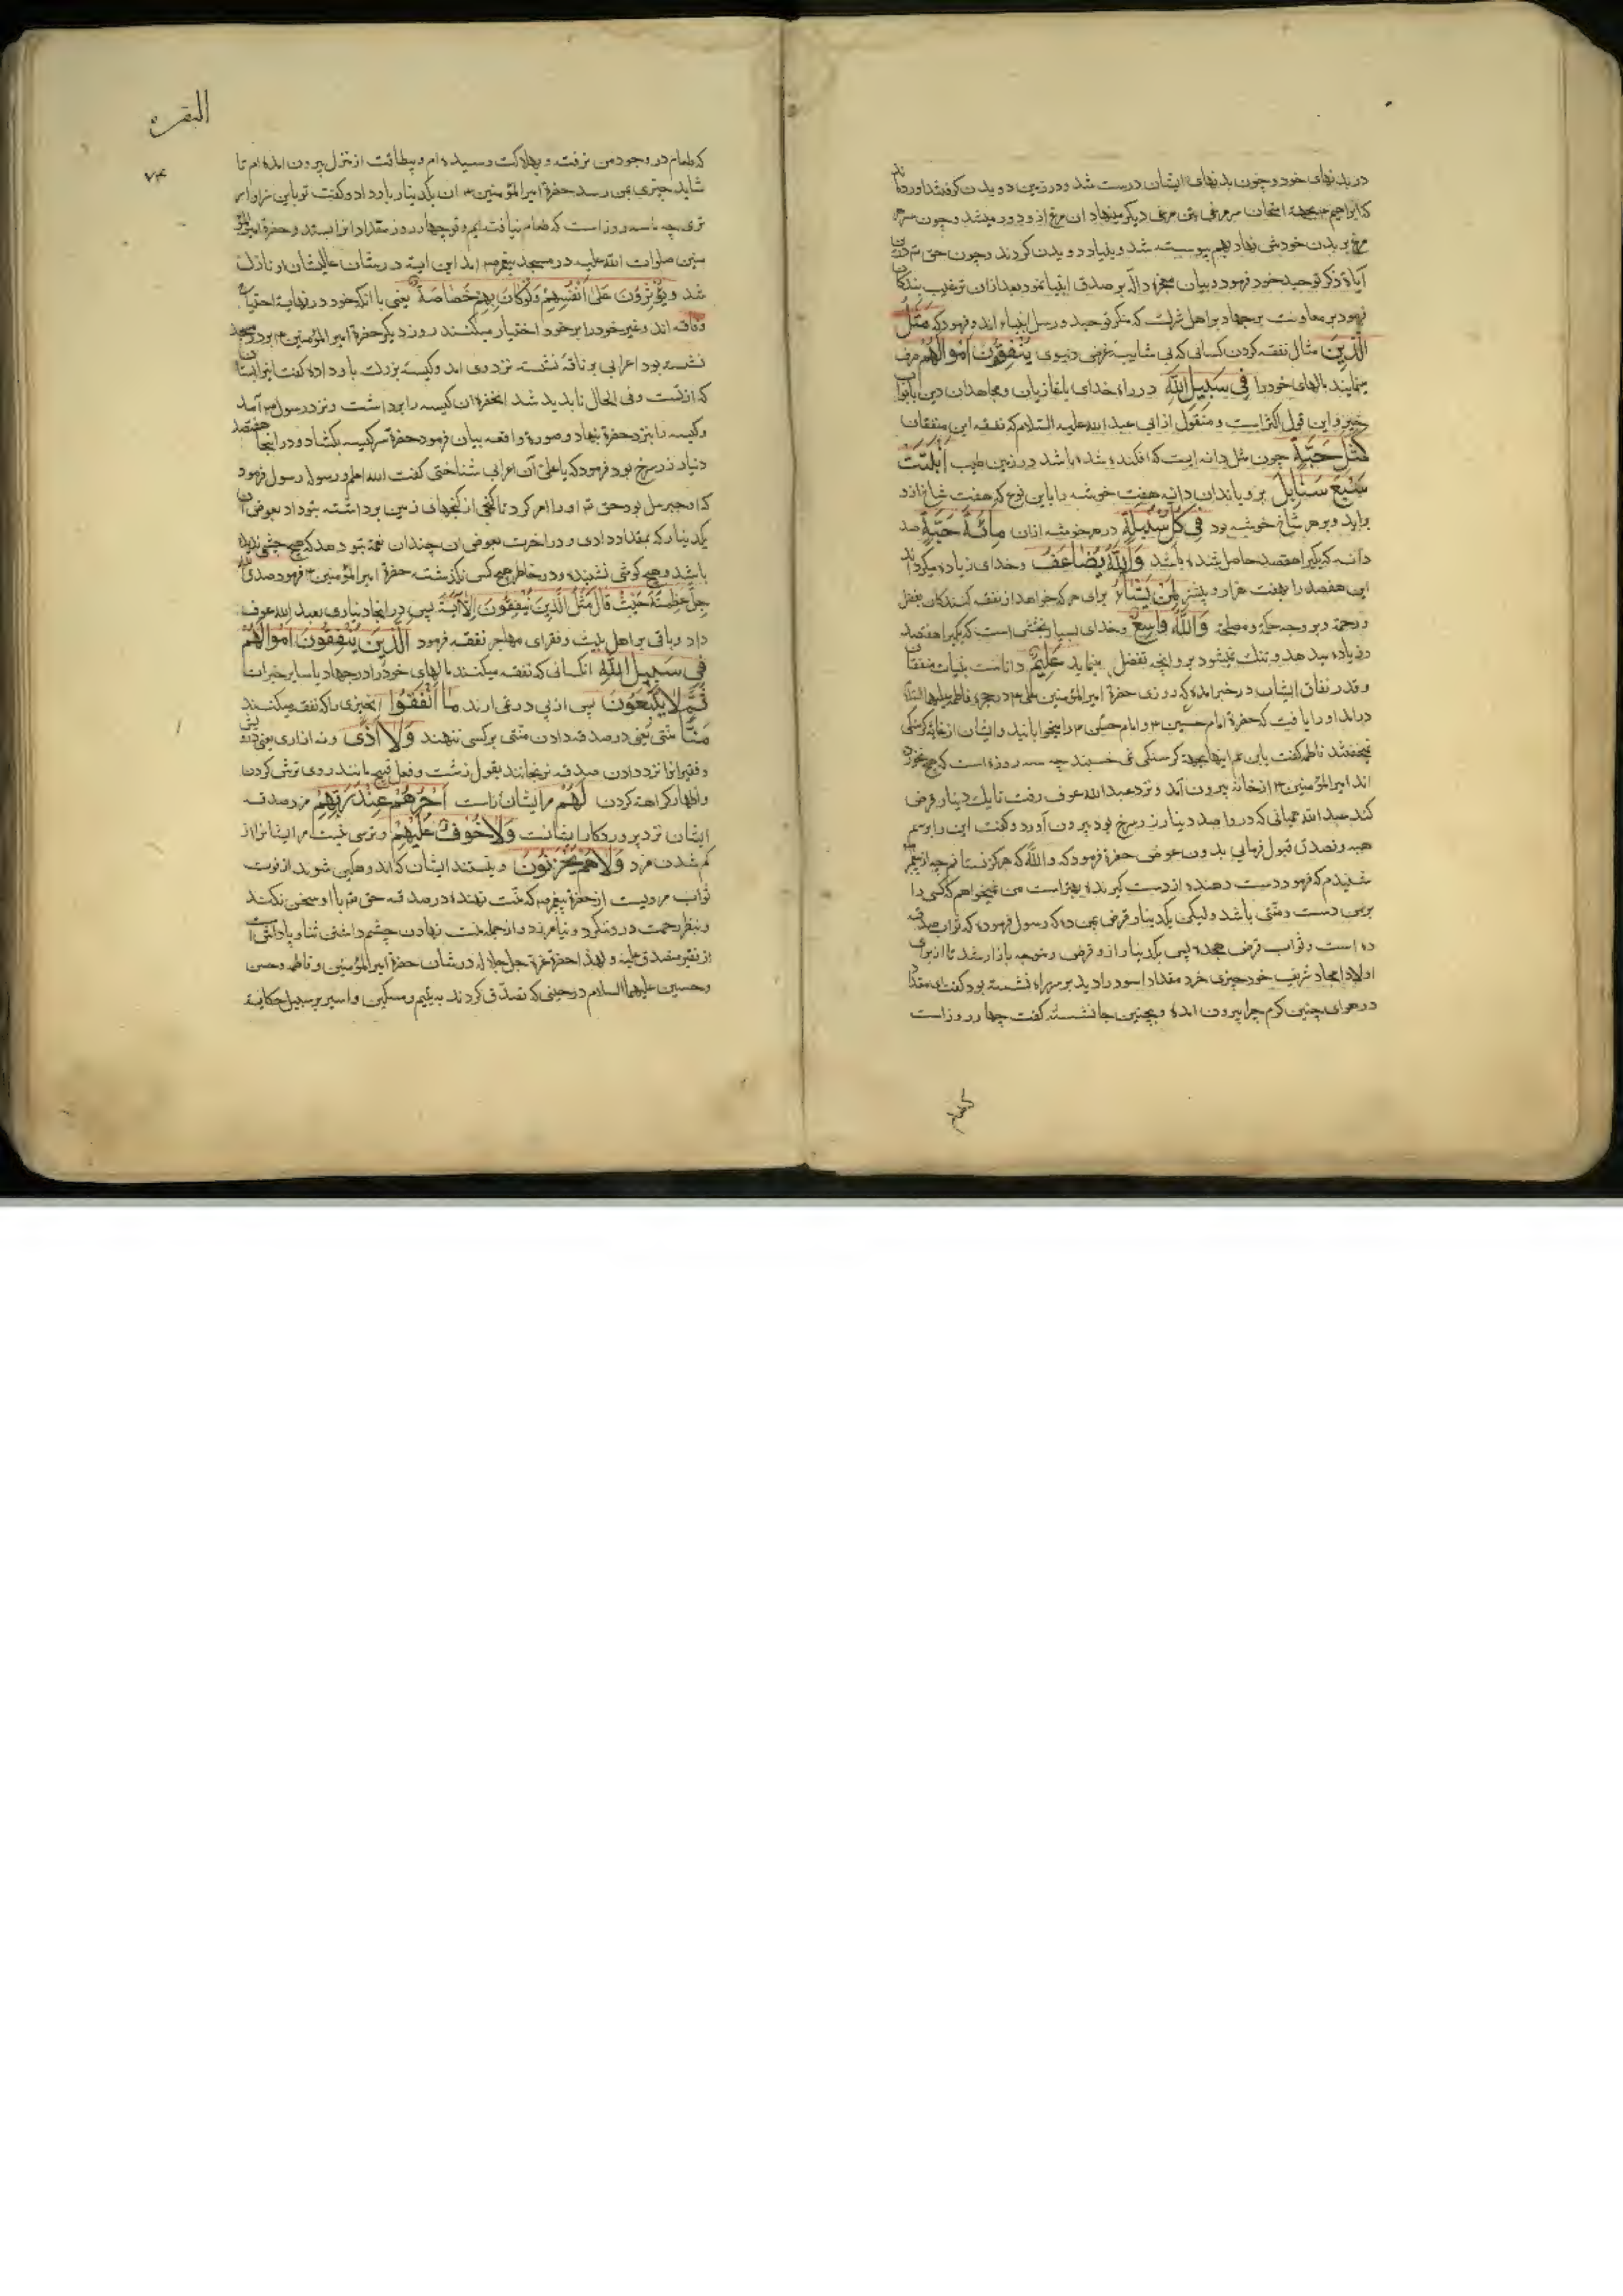 در بدنهای خود و چون بدنهای ایشان درست شد و در زمین دویدن گرفتند آورده اند
که ابراهیم بجهة امتحان سر مرغی بتن مرغی دیگر مینهاد آن مرغ ازو دور میشد و چون سر هر
مرغ بر بدن خودش نهاد بهم پیوسته شد و بنیاد دویدن کردند و چون حق تع درین
آیات ذکر توحید خود فرمود و بیان معجزات داله بر صدق انبیا نمود بعد ازان ترغیب بندگان
فرمود بر معاونت بر جهاد بر اهل شرك که منکر توحید و رسل انبیاء اند و فرمود که مَثَلُ
الَّذِینَ مثال نفقه کردن کسانی که بی شایبه غرض دنیوی یُنْفِقُونَ اَمْوالَهُمْ صرف
مینمایند مالهای خود را فِی سَبِیلِ اللهِ در راه خدای با غازیان و مجاهدان دین یا ابواب
خیر و این قول اکثر است و منقول از ابی عبد الله علیه السلام که نفقه این منفقان
کَمَثَلِ حَبَّةٍ چون مثل دانه ایست که افکنده شده باشد در زمین طیب اَنْبَتَتْ
سَبْعَ سَنابِلَ برویاند آن دانه هفت خوشه را باین نوع که هفت شاخ ازو
براید و بر هر شاخ خوشه بود فِی کُلِّ سُنْبُلَةٍ در هر خوشه ازان مِائَةُ حَبَّةٍ صد
دانه که یکیرا هفتصد حاصل شده باشد وَاللهُ یُضاعِفُ و خدای زیاده میگرداند
این هفتصد را بهفت هزار و بیشتر لِمَنْ یَشاءُ برای هر که خواهد از نفقه کنندکان بفضل
و رحمة و بر وجه حکمة و مصلحة وَاللهُ واسِعٌ و خدای بسیار بخشش است که یکیرا هفتصد
و زیاده میدهد و تنك نمیشود برو آنچه تفضل مینماید عَلِیمٌ داناست بنیات منفقان
و قدر نفاق ایشان در خبر آمده که روزی حضرة امیر المؤمنین علی ع در حجره فاطمه علیها السلام
درآمد او را یافت که حضرة امام حسین ع و امام حسن ع را میخوابانید و ایشان از غایة گرسنگی
نمیخفتند فاطمه گفت یابن عم اینها بجهة کرسنگی نمی خسبند چه سه روزه است که هیچ نخورده
اند امیر المؤمنین ع از خانه بیرون آمد و نزد عبد الله عوف رفت تا یك دینار قرض
کند عبد الله همیانی که درو صد دینار زر سرخ بود بیرون آورد و گفت این را برسم
هبه و تصدق قبول فرمای بدون عوض حضرة فرمود که والله که هرکز نستانم چه از پیغمبر
شنیدم که فرمود دست دهنده از دست گیرنده بهتر است من نمیخواهم که کسی را
بر من دست و منتی باشد ولیکن یکدینار قرض بمن ده که رسول فرموده که ثواب صدقه
ده است و ثواب قرض هجده پس یکدینار ازو قرض و متوجه بازار شد تا از برای
اولاد امجاد شریف خود چیزی خرد مقداد اسود را دید بر سر راه نشسته بود گفت ای مقداد
در هوای چنین کرم چرا بیرون آمده و بچنین جا نشسته گفت چهار روز است
که طعام
البقره
۷۴
که طعام در وجود من نرفته و بهلاکت رسیده ام و بیطاقت از منزل بیرون آمده ام تا
شاید چیزی بمن رسد حضرة امیر المؤمنین ع آن یکدینار باو داد و گفت تو باین سزاوار
تری چه ما سه روز است که طعام نیافته ایم و تو چهار روز مقداد انرا بستد و حضرة امیر المؤ
منین صلوات الله علیه در مسجد پیغمبر ص آمد این آیه در شان عالیشان او نازل
شد وَیُؤْثِرُونَ عَلی اَنْفُسِهِمْ وَلَوْ کانَ بِهِمْ خَصاصَةٌ یعنی با آنکه خود در نهایة احتیاج
و فاقه اند و غیر خود را بر خود اختیار میکنند روز دیگر حضرة امیر المؤمنین ع بر در مسجد
نشسته بود اعرابی بر ناقه نشسته نزد وی آمد و کیسه بزرك باو داده گفت
و فی الحال ناپدید شد آنحضرة ان کیسه را برداشت و نزد رسول ص آمد
و کیسه را بنزد حضرة بنهاد و صورة واقعه بیان فرمود حضرة سر کیسه بکشاد و در اینجا هفتصد
دینار زر سرخ بود فرمود که یا علی آن اعرابی شناختی گفت الله اعلم و رسوله رسول فرمود
که او جبرئیل بود حق تع او را امر کرد تا کنجی از کنجهای زمین برداشته بتو داد بعوض آن
یکدینار که بمقداد دادی و در اخرت بعوض ان چندان نعمة بتو دهد که هیچ چشم ندیده
باشد و هیچ گوش نشنیده و در خاطر هیچ کس نکذشته حضرة امیر المؤمنین ع فرمود صدق الله
جل عظمته حَیْثُ قالَ مَثَلُ الَّذِینَ یُنْفِقُونَ اِلآیَةَ پس در انجا دیناری بعبد الله عوف
داد و باقی بر اهل بیت و فقرای مهاجر نفقه فرمود اَلَّذِینَ یُنْفِقُونَ اَمْوالَهُمْ
فِی سَبِیلِ اللهِ آنکسانی که نفقه میکنند مالهای خود را در جهاد یا سایر خیرات
ثُمَّ لا یُتْبِعُونَ پس از پی در نمی ارند ما اَنْفَقُوا آنچیزی را که نفقه میکنند
مَنًّا منتی یعنی در صدقه دادن منتی بر کسی ننهند وَلا اَذًی و نه آزاری یعنی
و فقیرانرا نزد دادن صدقه نرنجانند بقول زشت و فعل قبیح مانند روی ترش کردن
و اظهار کراهة کردن لَهُمْ مر ایشانراست اَجْرُهُمْ عِنْدَ رَبِّهِمْ مزد صدقه
ایشان نزد پروردکار ایشانست وَلا خَوْفٌ عَلَیْهِمْ و ترسی نیست مر ایشانرا از
کم شدن مزد وَلا هُمْ یَحْزَنُونَ و نیستند ایشان که اندوهگین شوند از فوت
ثواب مرویست از حضرة پیغمبر ص که منت نهنده در صدقه حق تع با او سخن نکند
و بنظر رحمت درو ننگرد و نیامرزد و از جمله منت نهادن چشم داشتن ثنا و پاداش است
از فقیر متصدق علیه و لهذا حضرة عزة جل جلاله در شان حضرة امیر المؤمنین و فاطمه و حسن
و حسین علیهم السلام در حینی که تصدق کردند به یتیم و مسکین و اسیر بر سبیل حکایة